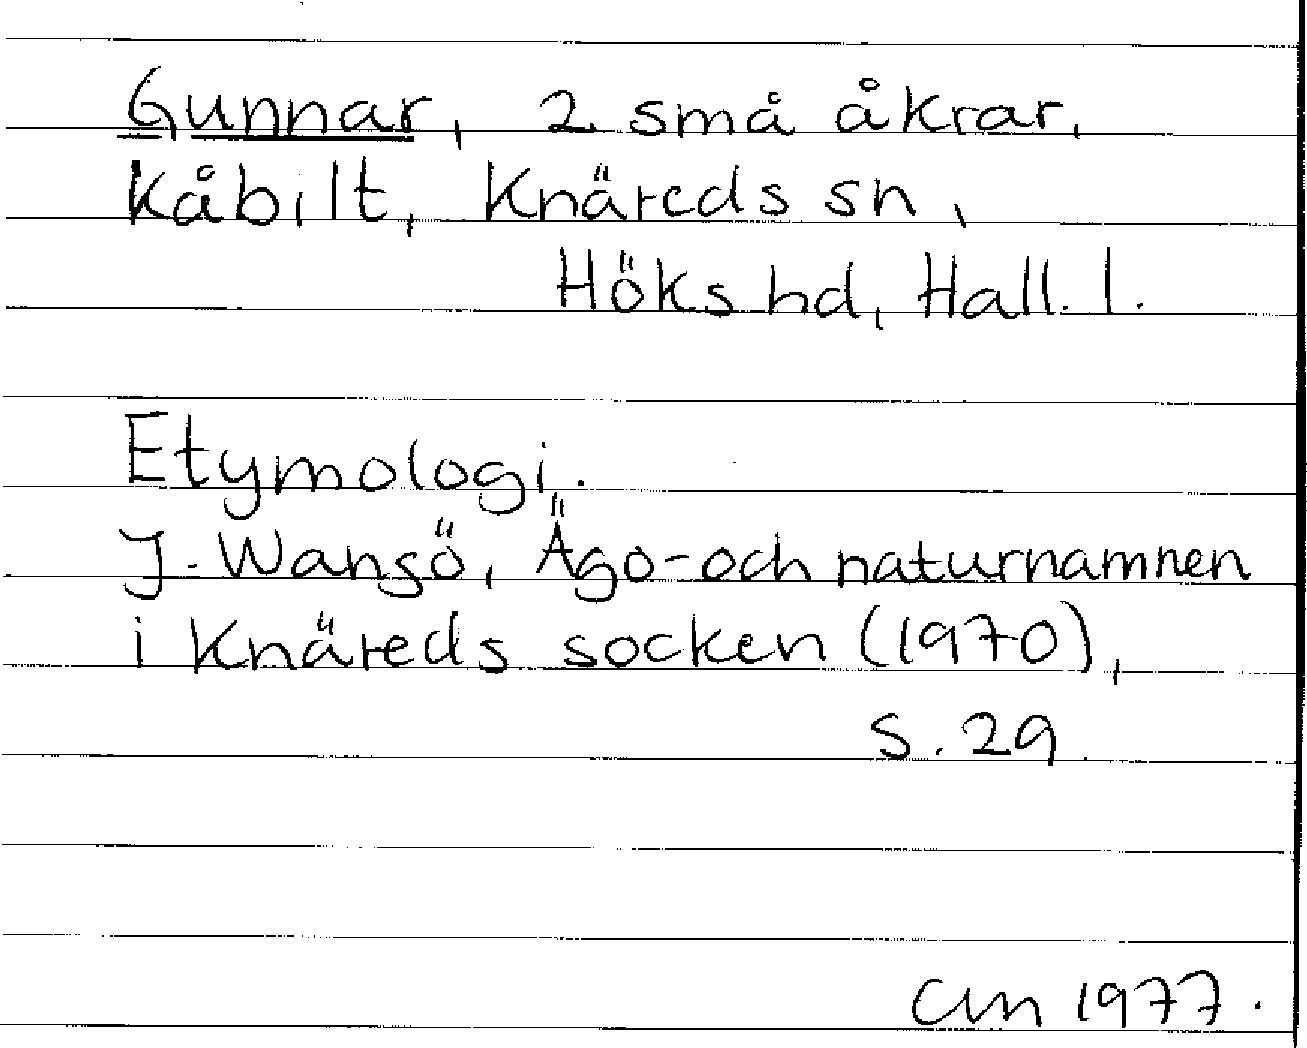 Gunnar, 2 små åkrar,
Kåbilt, Knäreds sn,
Höks hd, Hall. l.
Etymologi.
J. Wansö, Ägo- och naturnamnen
i Knäreds socken (1970),
s. 29.
CLM 1977.